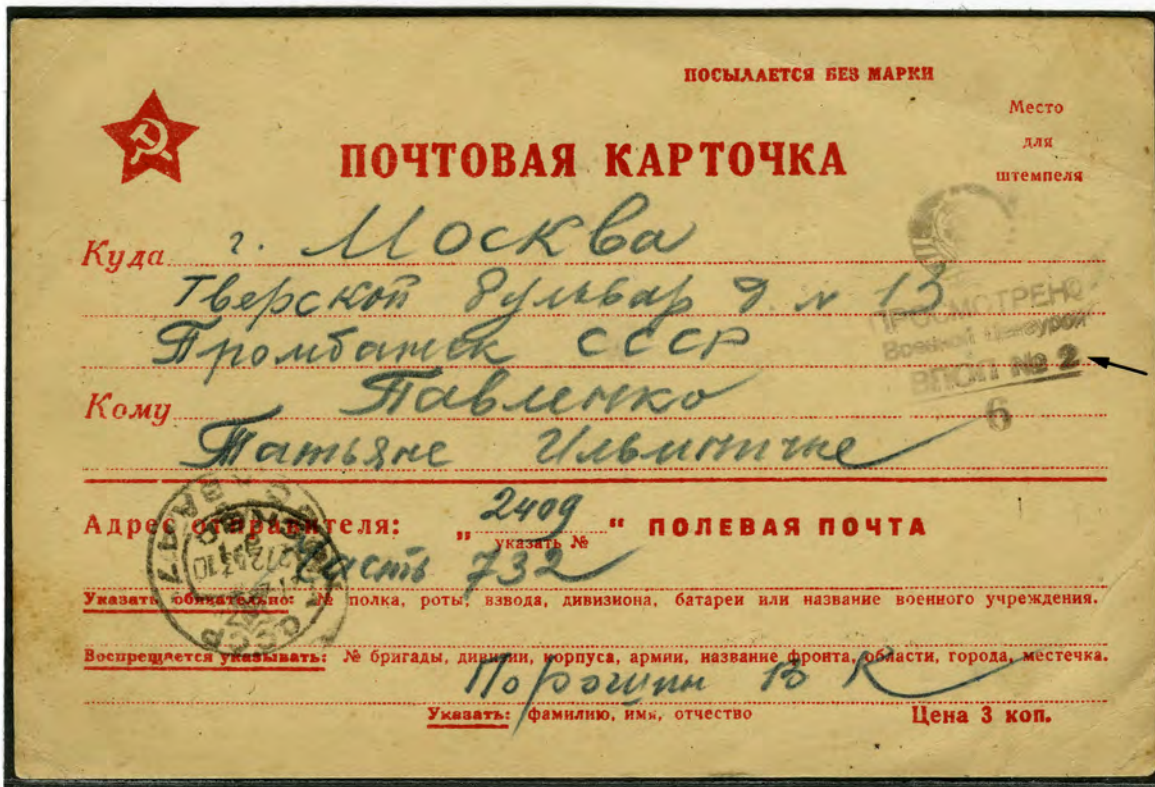 ПОСЫЛАЕТСЯ БЕЗ МАРКИ
Место
для
штемпеля
ПОЧТОВАЯ КАРТОЧКА
Куда г. Москва
Тверской бульвар д. № 13
Промбанк СССР
ПРОСМОТРЕНО
Военной Цензурой
№ 2
6
Кому Павленко
Татьяне Ильиничне
Адрес отправителя: „ 2409 “ ПОЛЕВАЯ ПОЧТА
указать №
часть 732
Указать обязательно: № полка, роты, взвода, дивизиона, батареи или название военного учреждения.
Воспрещается указывать: № бригады, дивизии, корпуса, армии, название фронта, области, города, местечка.
Порошин В К
Указать: фамилию, имя, отчество
Цена 3 коп.